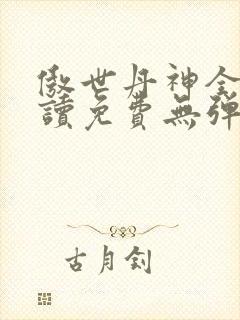 傲世丹神全
讀免費無彈
古月釗